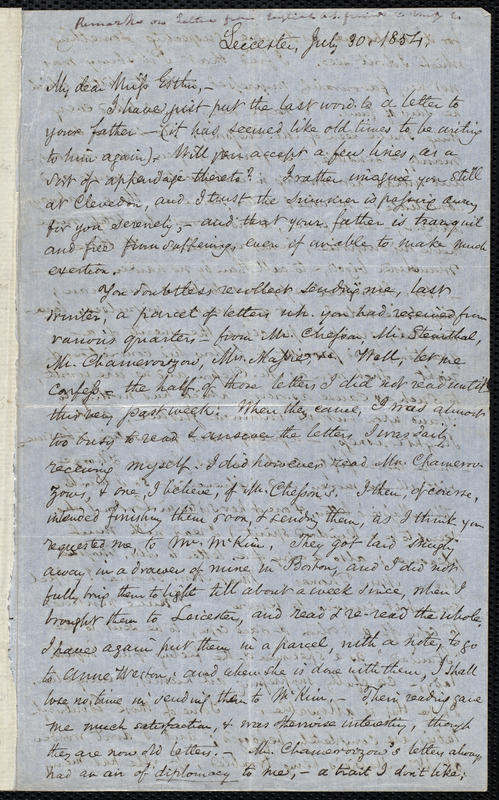 Remarks on Letters from English
Leicester, July 30, 1854.
My dear Miss Esther,—
I have just put the last word to a letter to
your father — (it has seemed like old times to be writing
to him again). Will you accept a few lines, as a
sort of appendage thereto? I rather imagine you still
at Clevedon, and I trust the summer is passing away
for you serenely,— and that your father is tranquil
and free from suffering, even if unable to make much
exertion.
You doubtless recollect sending me, last
winter, a parcel of letters wh. you had received from
various quarters — from Mr. Chesson, Mr. Steinthal,
Mr. Chamerovzow, Mrs. &c. Well, let me
confess,— the half of those letters I did not read until
this very past week. When they came, I was almost
too busy to read & answer the letters I was daily
receiving myself. I did however read Mr. Chamerov-
zow's, & one, I believe, of Mr. Chesson's. I then, of course,
intended finishing them soon, & sending them, as I think you
requested me, to Mr. McKim. They got laid snugly
away in a drawer of mine in Boston, and I did not
fully bring them to light till about a week since, when I
brought them to Leicester, and read & re-read the whole.
I have again put them in a parcel, with a note, to go
to Anne Weston, and when she is done with them, I shall
lose no time in sending them to McKim.— Their reading gave
me much satisfaction, & was otherwise interesting, though
they are now old letters.— Mr. Chamerovzow's letters always
had an air of diplomacy to me,— a trait I don't like;